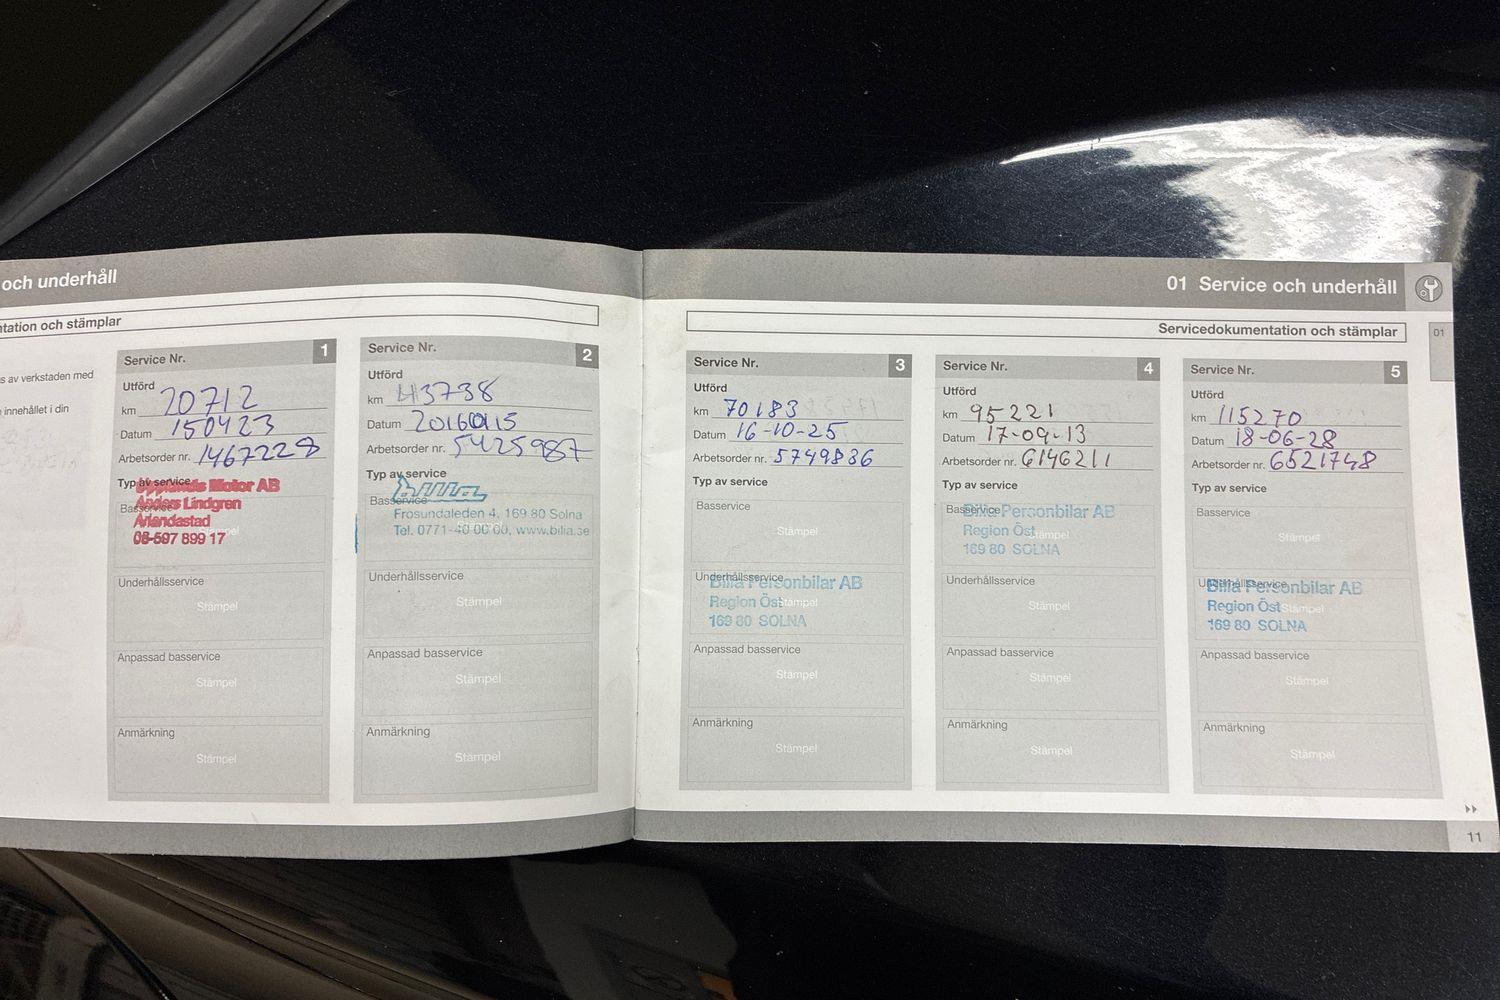 och underhåll
tation och stämplar
s av verkstaden med
innehållet i din
Service Nr. 1
Utförd
km 20712
Datum 150423
Arbetsorder nr. 1467228
Typ av service
Basservice
Upplands Motor AB
Anders Lindgren
Arlandastad
08-597 899 17
Underhållsservice
Stämpel
Anpassad basservice
Stämpel
Anmärkning
Stämpel
Service Nr. 2
Utförd
km 43738
Datum 20160115
Arbetsorder nr. 5425987
Typ av service
Basservice
bilia
Frösundaleden 4, 169 80 Solna
Tel. 0771-40 00 00, www.bilia.se
Underhållsservice
Stämpel
Anpassad basservice
Stämpel
Anmärkning
Stämpel
01 Service och underhåll
Servicedokumentation och stämplar
01
Service Nr. 3
Utförd
km 70183
Datum 16-10-25
Arbetsorder nr. 5749836
Typ av service
Basservice
Stämpel
Underhållsservice
Bilia Personbilar AB
Region Öst
Stämpel
169 80 SOLNA
Anpassad basservice
Stämpel
Anmärkning
Stämpel
Service Nr. 4
Utförd
km 95221
Datum 17-09-13
Arbetsorder nr. 6146211
Typ av service
Basservice
Bilia Personbilar AB
Region Öst
Stämpel
169 80 SOLNA
Underhållsservice
Stämpel
Anpassad basservice
Stämpel
Anmärkning
Stämpel
Service Nr. 5
Utförd
km 115270
Datum 18-06-28
Arbetsorder nr. 6521748
Typ av service
Basservice
Stämpel
Underhållsservice
Bilia Personbilar AB
Region Öst
Stämpel
169 80 SOLNA
Anpassad basservice
Stämpel
Anmärkning
Stämpel
11